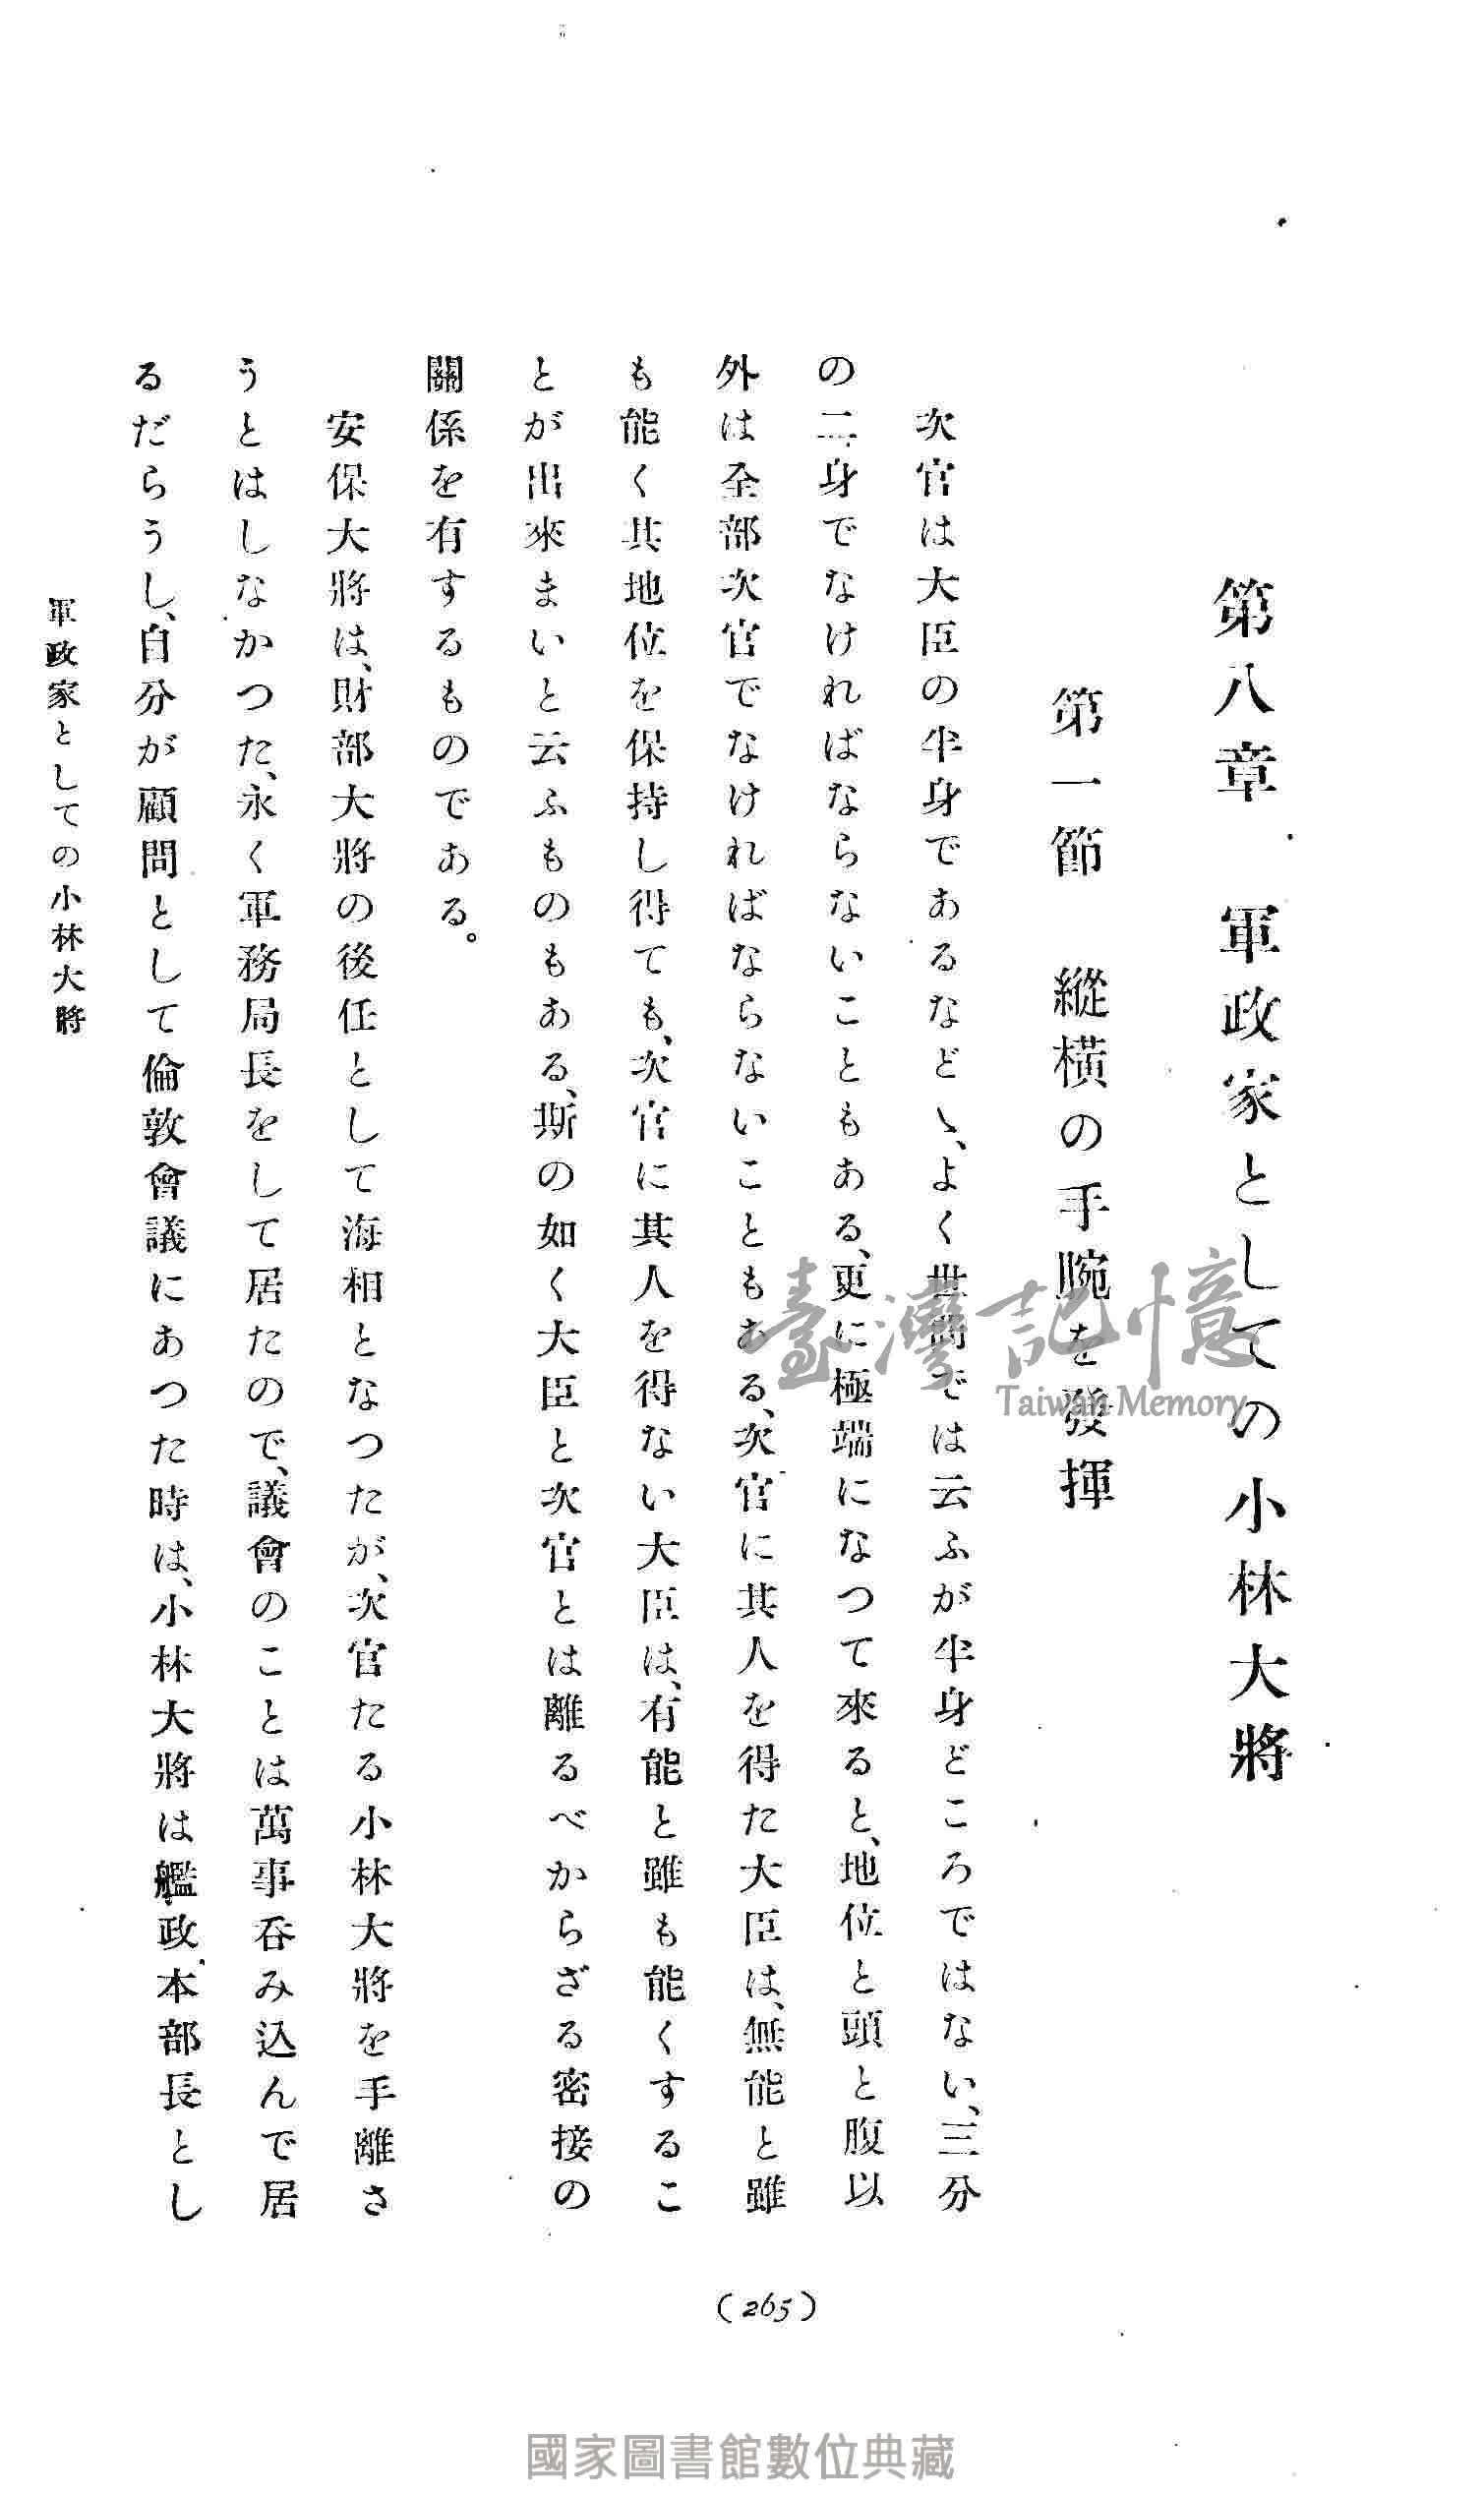 第八章　軍政家としての小林大將
第一節　縱橫の手腕を發揮
次官は大臣の半身であるなどゝ、よく世間では云ふが半身どころではない、三分
の二身でなければならないこともある、更に極端になつて來ると、地位と頭と腹以
外は全部次官でなければならないこともある、次官に其人を得た大臣は、無能と雖
も能く其地位を保持し得ても、次官に其人を得ない大臣は、有能と雖も能くするこ
とが出來まいと云ふものもある、斯の如く大臣と次官とは離るべからざる密接の
關係を有するものである。
安保大將は、財部大將の後任として海相となつたが、次官たる小林大將を手離さ
うとはしなかつた、永く軍務局長をして居たので、議會のことは萬事呑み込んで居
るだらうし、自分が顧問として倫敦會議にあつた時は、小林大將は艦政本部長とし
軍政家としての小林大將
(265)
臺灣記憶
Taiwan Memory
國家圖書館數位典藏